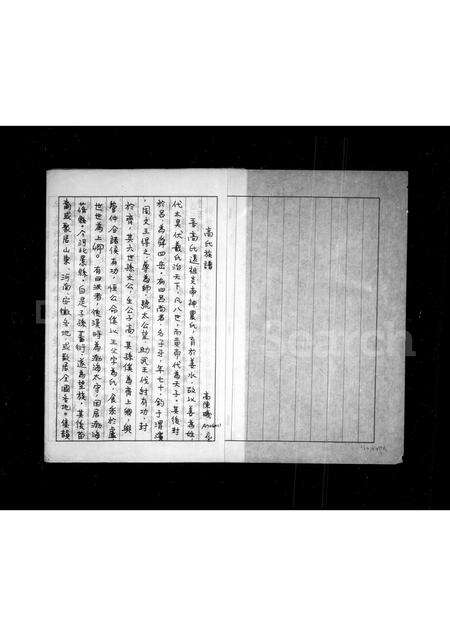 高氏族譜
吾高氏遠祖炎帝神農氏,育於姜水,故以姜為姓
代太昊伏羲氏治天下,凡八世,而黃帝代為天子。其後封
於呂,為四岳。有呂尚者,名子牙,年七十,釣于渭濱
,周文王得之,尊為師,號太公望,助武王伐紂有功,封
於齊,其六世孫文公,生公子高,其孫傒為齊上卿,與
管仲合諸侯有功,桓公命傒以王父字為氏,食采於盧
世世為上卿。有曰洪者,後漢時為渤海太守,因居渤海
蓚縣,今河北景縣,自是子孫蕃衍,遂為望族,其後益
高 盛聚居山東、河南、安徽各地,或散居全國各地。